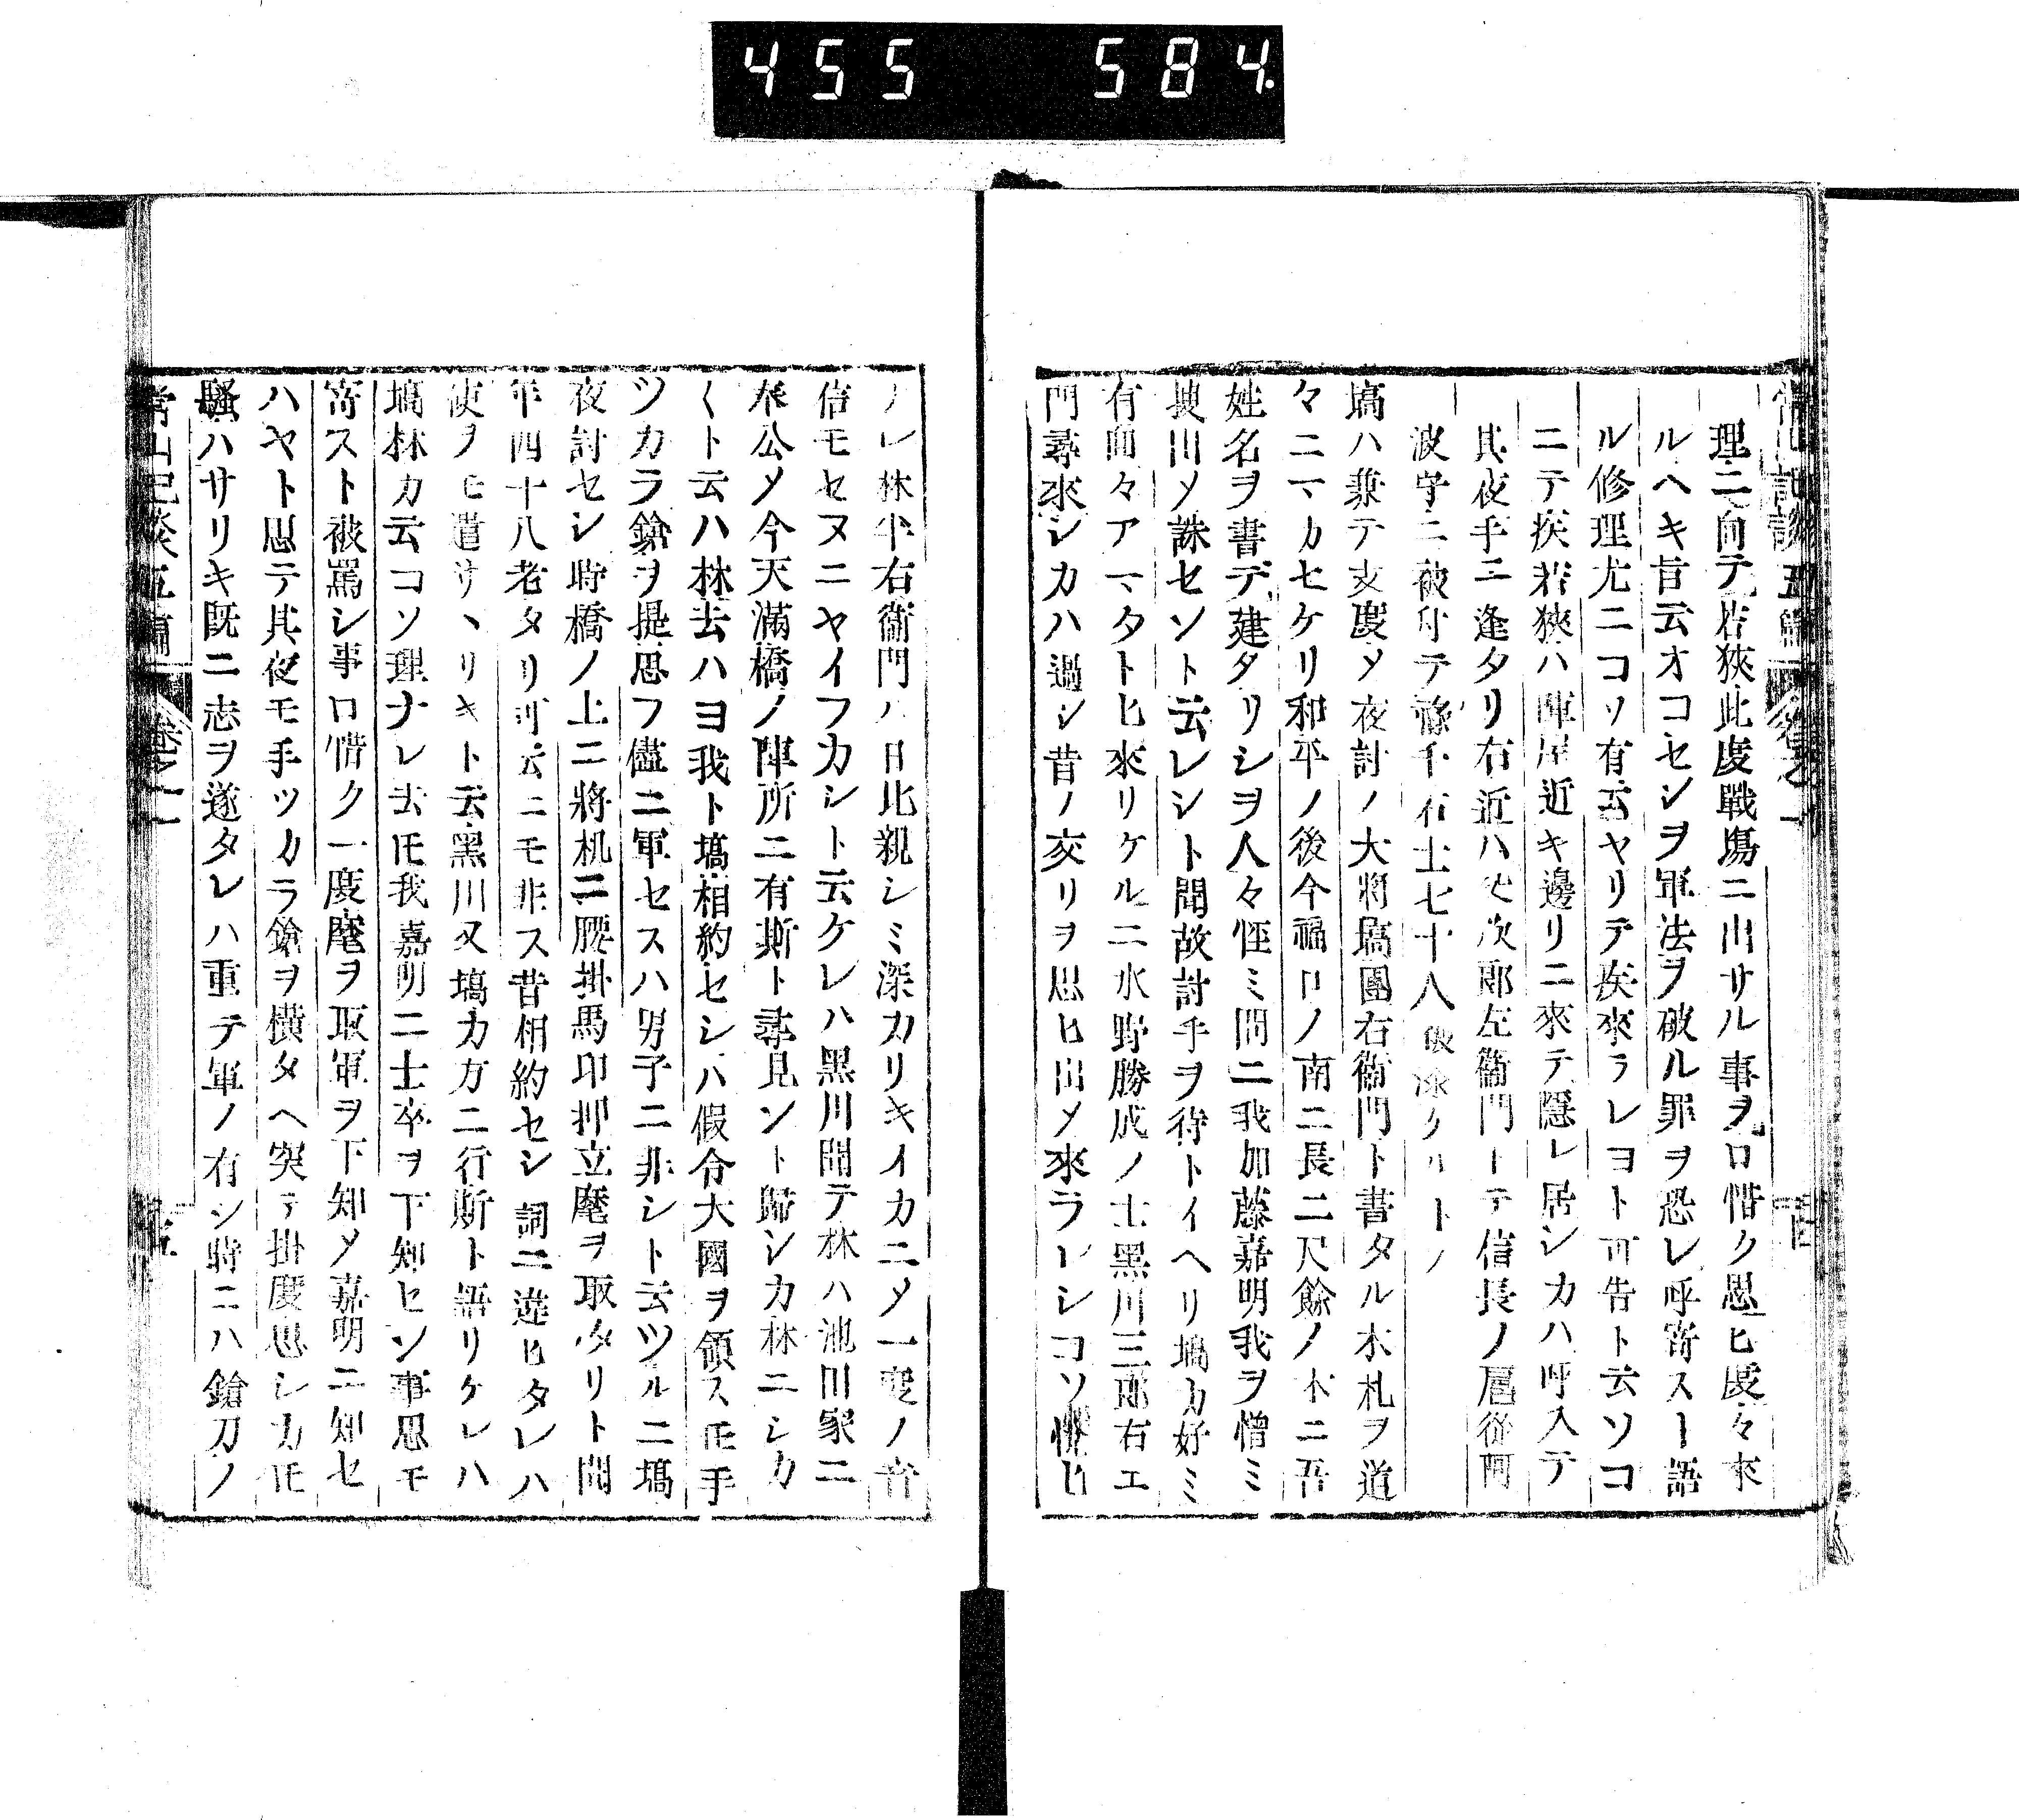 455 584.
理ニ向テ若狹此度戰塲ニ出サル事ヲ口惜ク思ヒ度々來
ルヘキ旨云オコセシヲ軍法ヲ破ル罪ヲ恐レ呼寄スト語
ル修理尤ニコソ有云ヤリテ疾來ラレヨト可告ト云ソコ
ニテ疾若狹ハ陣屋近キ邊リニ來テ隱レ居シカハ呼入テ
其夜手ニ逢タリ右近ハ次郎左衞門トテ信長ノ扈從
波守ニ被付テ千石士七十八
塙ハ兼テ支度〆夜討ノ大將塙團右衞門ト書タル木札ヲ道
々ニマカセケリ和平ノ後今福口ノ南ニ長二尺餘ノ木ニ吾
姓名ヲ書デ建タリシヲ人々怪ミ問ニ我加藤嘉明我ヲ憎ミ
捜川〆誅セント云レシト聞故討手ヲ待トイヘリ塙カ好ミ
有面々アマタトヒ來リケルニ水野勝成ノ士黑川三郎右エ
門尋來シカハ過シ昔ノ交リヲ思ヒ出〆來ラレシコソ
レ林半右衞門ハ日比親シミ深カリキイカニ〆一度ノ音
信モセヌニヤイフカシト云ケレハ黑川聞テ林ハ池田家ニ
奉公〆今天滿橋ノ陣所ニ有斯ト尋見ント歸シカ林ニシカ
〱ト云ハ林去ハヨ我ト塙相約セシハ假令大國ヲ領ス𪜈手
ツカラ鎗ヲ提思フ儘ニ軍セスハ男子ニ非シト云ツルニ塙
夜討セシ時橋ノ上ニ將机ニ腰掛馬印押立麾ヲ取タリト聞
年四十八老タリ可云ニモ非ス昔相約セシ詞ニ違ヒタレハ
使ヲモ遣サヽリキト云黑川又塙カ方ニ行斯ト語リケレハ
塙林カ云コソ理ナレ去𪜈我嘉明ニ士卒ヲ下知セン事思モ
寄スト被罵シ事口惜ク一度麾ヲ取軍ヲ下知〆嘉明ニ知セ
ハヤト思テ其夜モ手ツカラ鎗ヲ橫タヘ突テ掛度思シカ𪜈
騷ハサリキ既ニ志ヲ遂タレハ重テ軍ノ有シ時ニハ鎗刀ノ
常山紀談五編 卷之一 五